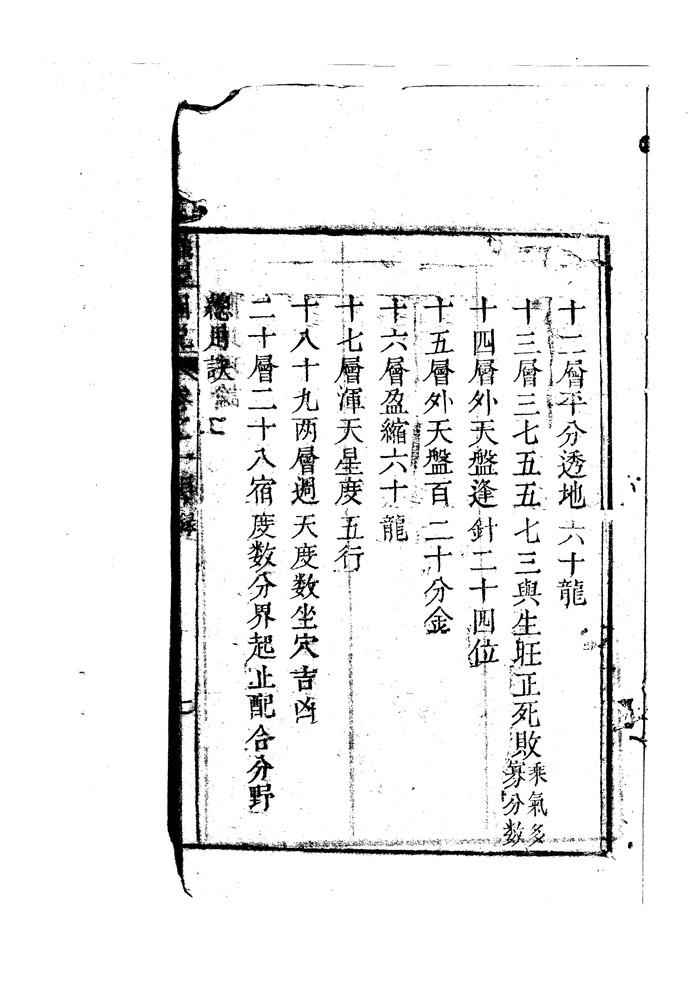 十二層平分透地六十龍
十三層三七五五七三與生旺正死敗乘氣多寡分数
十四層外天盤逢針二十四位
十五層外天盤百二十分金
十六層盈縮六十龍
十七層渾天星度五行
十八十九两層週天度数坐穴吉凶
二十層二十八宿度数分界起止配合分野
總用訣
卷之一